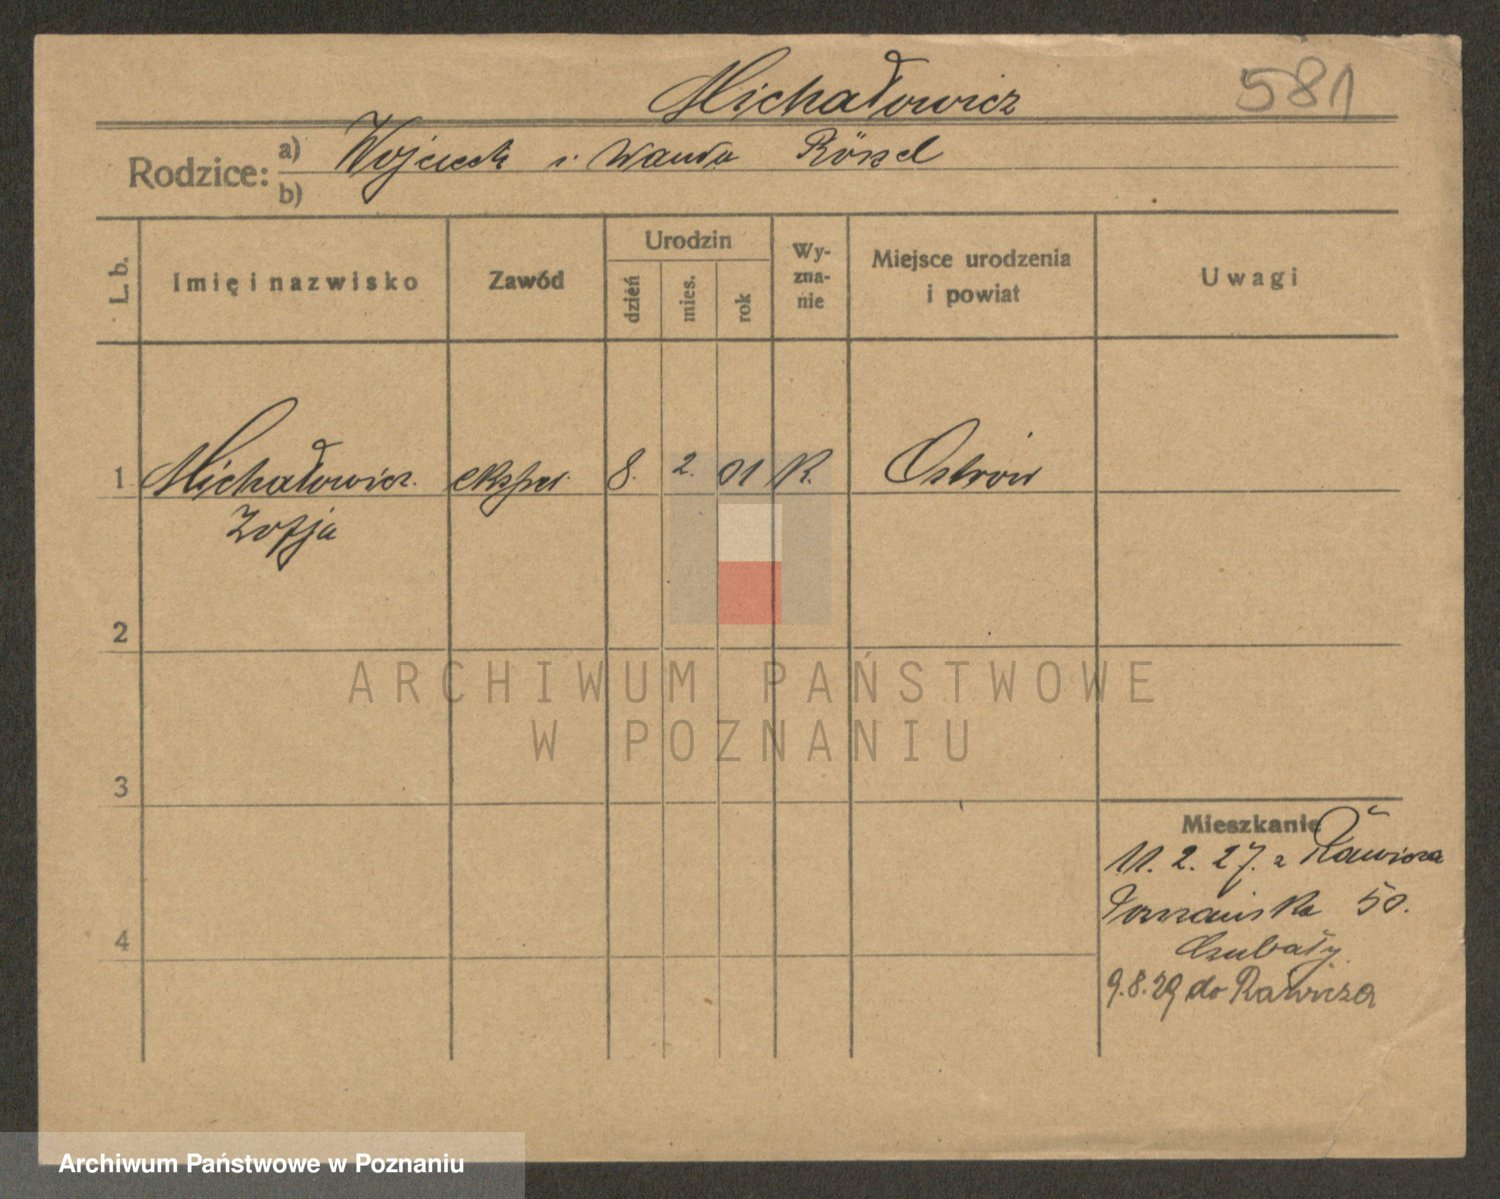 Michałowicz 581
Rodzice: a) Wojciech i Wanda Rössel
b)
L. b. Imię i nazwisko Zawód Urodzin Wy-zna-nie Miejsce urodzenia i powiat Uwagi
dzień mies. rok
1 Michałowicz eksped. 8. 2. 01 K. Ostrów
Zofja
2
ARCHIWUM PAŃSTWOWE
W POZNANIU
3
Mieszkanie
11. 2. 27. z Rawicza
Poznańska 50.
4
9.8.29 do Rawicza
Archiwum Państwowe w Poznaniu